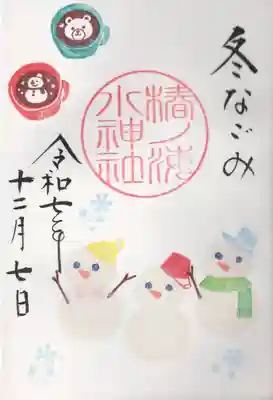 冬なごみ
椿ノ池
水神社
令和七年
十二月七日